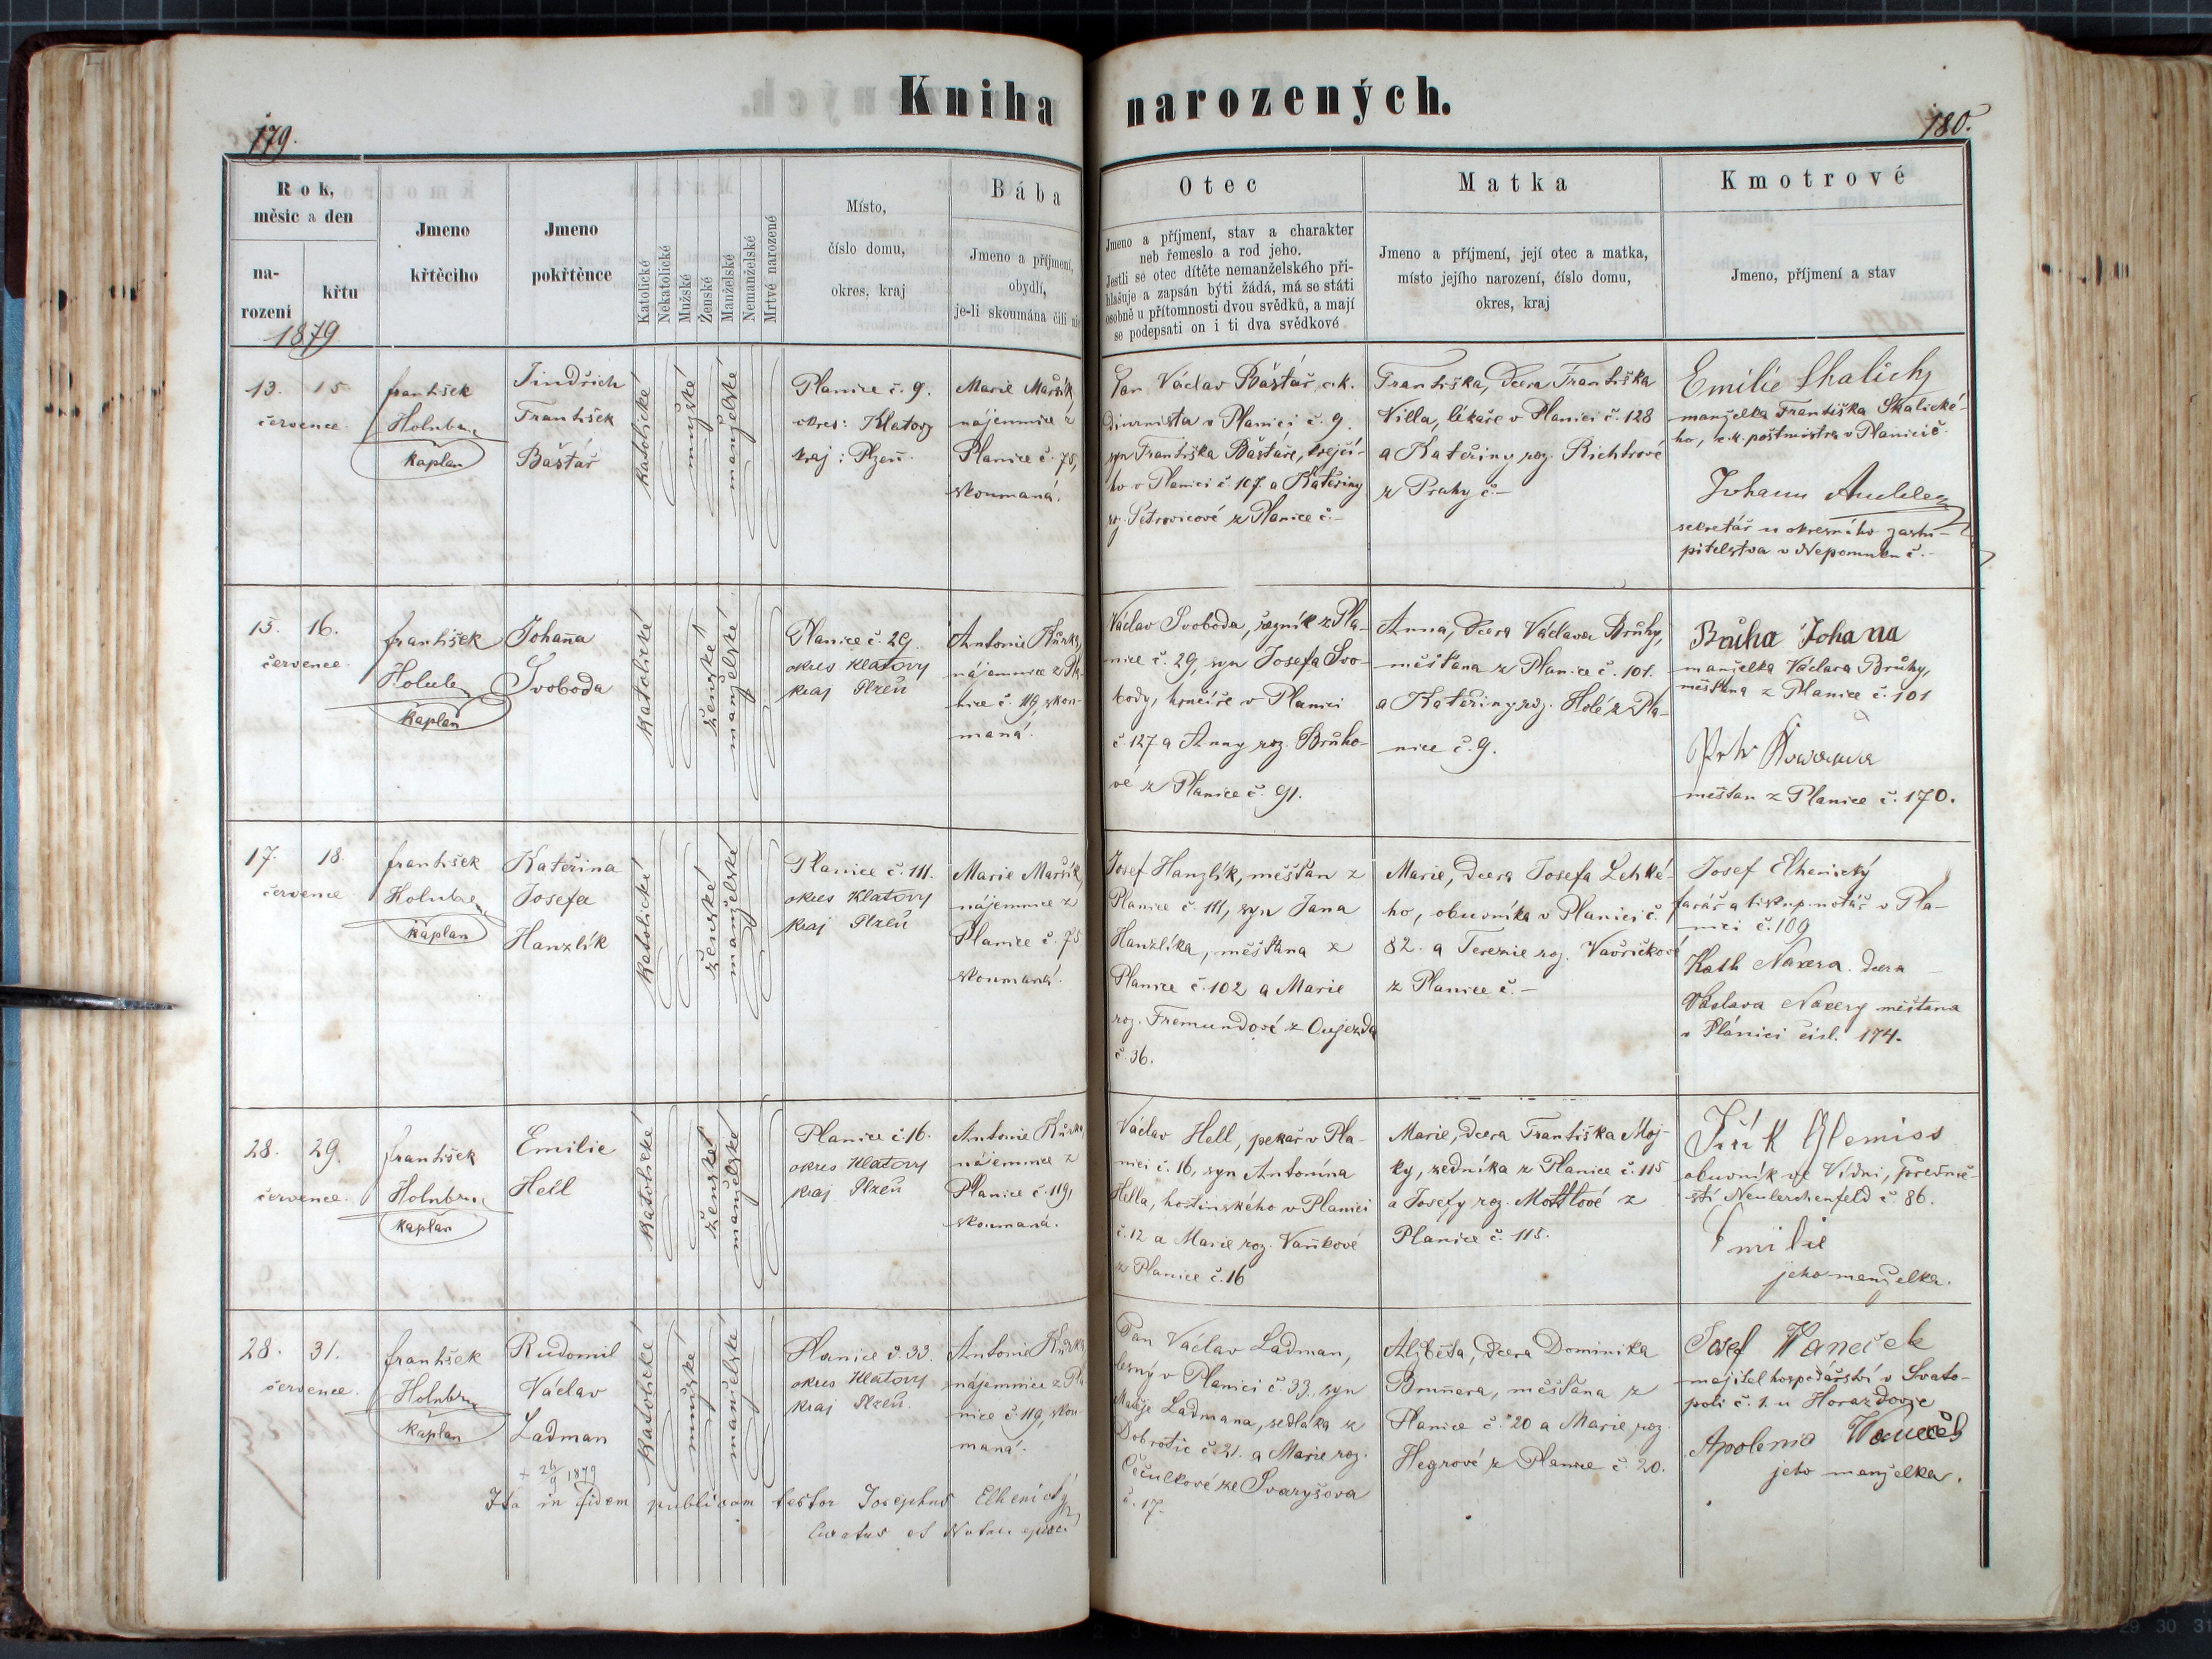 Kniha narozených.
179.
180.
Rok,
měsíc a den
na-
rození
křtu
Jmeno
křtěcího
Jmeno
pokřtěnce
Katolické
Nekatolické
Mužské
Ženské
Manželské
Nemanželské
Mrtvě narozené
Místo,
číslo domu,
okres, kraj
Bába
Jmeno a příjmení,
obydlí,
je-li skoumána čili nic
Otec
Jmeno a příjmení, stav a charakter
neb řemeslo a rod jeho.
Jestli se otec dítěte nemanželského při-
hlašuje a zapsán býti žádá, má se státi
osobně u přítomnosti dvou svědků, a mají
se podepsati on i ti dva svědkové
Matka
Jmeno a příjmení, její otec a matka,
místo jejího narození, číslo domu,
okres, kraj
Kmotrové
Jmeno, příjmení a stav
1879
13. 15
července
František
Holub
kaplan
Jindřich
František
Baštář
katolické
mužské
manželské
Planice č. 9.
okres: Klatovy
kraj: Plzeň.
Marie Maršík,
nájemnice z
Planice č. 75,
skoumaná.
Pan Václav Baštář, c.k.
diurnista v Planici č. 9.
syn Františka Baštáře, krejčí-
ho v Planici č. 107. a Kateřiny
roz. Petrovicové z Planice č. –
Františka, dcera Františka
Villa, lékaře v Planici č. 128
a Kateřiny roz. Richtrové
z Prahy č. –
Emilie Skalický
manželka Františka Skalické-
ho, c.k. poštmistra v Planici č.
Johann
sekretář u okresního zastu-
pitelstva v Nepomuku č. –
15. 16.
července
František
Holub
kaplan
Johaña
Svoboda
katolické
ženské
manželské
Planice č. 29.
okres Klatovy
kraj Plzeň
Antonie Kůrka,
nájemnice z Pla-
nice č. 119, skou-
maná.
Václav Svoboda, řezník z Pla-
nice č. 29, syn Josefa Svo-
body, hrnčíře v Planici
č. 127 a Anny roz. Brůho-
vé z Planice č. 91.
Anna, dcera Václava Brůhy,
měšťana z Planice č. 101.
a Kateřiny roz. Holé z Pla-
nice č. 9.
Brůha Johana
manželka Václava Brůhy,
měšťana z Planice č. 101
měštan z Planice č. 170.
17. 18.
července
František
Holub
kaplan
Kateřina
Josefa
Hanzlík
katolické
ženské
manželské
Planice č. 111.
okres Klatovy
kraj Plzeň
Marie Maršík,
nájemnice z
Planice č. 75
skoumaná.
Josef Hanzlík, měšťan z
Planice č. 111, syn Jana
Hanzlíka, měšťana z
Planice č. 102 a Marie
roz. Fremundové z Oujezda
č. 36.
Marie, dcera Josefa Lehké-
ho, obuvníka v Planici č.
82. a Terezie roz. Vavřičkové
z Planice č. –
Josef Elhenický
farář a biskup. notář v Pla-
nici č. 109
Kath Naxera. dcera
Václava Naxery měštana
v Plánici čísl. 174.
28. 29.
července.
František
Holub
kaplan
Emilie
Hell
katolické
ženské
manželské
Planice č. 16.
okres Klatovy
kraj Plzeň
Antonie Kůrka,
nájemnice z
Planice č. 119,
skoumaná.
Václav Hell, pekař v Pla-
nici č. 16, syn Antonína
Hella, hostinského v Planici
č. 12 a Marie roz. Vaňkové
z Planice č. 16
Marie, dcera Františka Moj-
ky, zedníka z Planice č. 115
a Josefy roz. Mottlové z
Planice č. 115.
obuvník ve Vídni, předmě-
stí Neulerchenfeld č. 86.
Emilie
jeho manželka.
28. 31.
července.
František
Holub
kaplan
Rudomil
Václav
Ladman
+ 26/9 1879
katolické
mužské
manželské
Planice č. 33.
okres Klatovy
kraj Plzeň.
Antonie Kůrka,
nájemnice z Pla-
nice č. 119, skou-
maná.
Pan Václav Ladman,
lesný v Planici č. 33, syn
Matěje Ladmana, sedláka z
Dobrotic č. 21. a Marie roz.
Čečulkové ze Svaryšova
č. 17.
Alžběta, dcera Dominika
Bruñera, měšťana z
Planice č. 20 a Marie roz.
Hegrové z Planice č. 20.
Josef Waneček
majitel hospodářství v Svato-
poli č. 1. u Horažďovic
Apolonia Waneček
jeho manželka.
Ita in fidem publicam testor Josephus Elhenický
Curatus et Notar. episc.